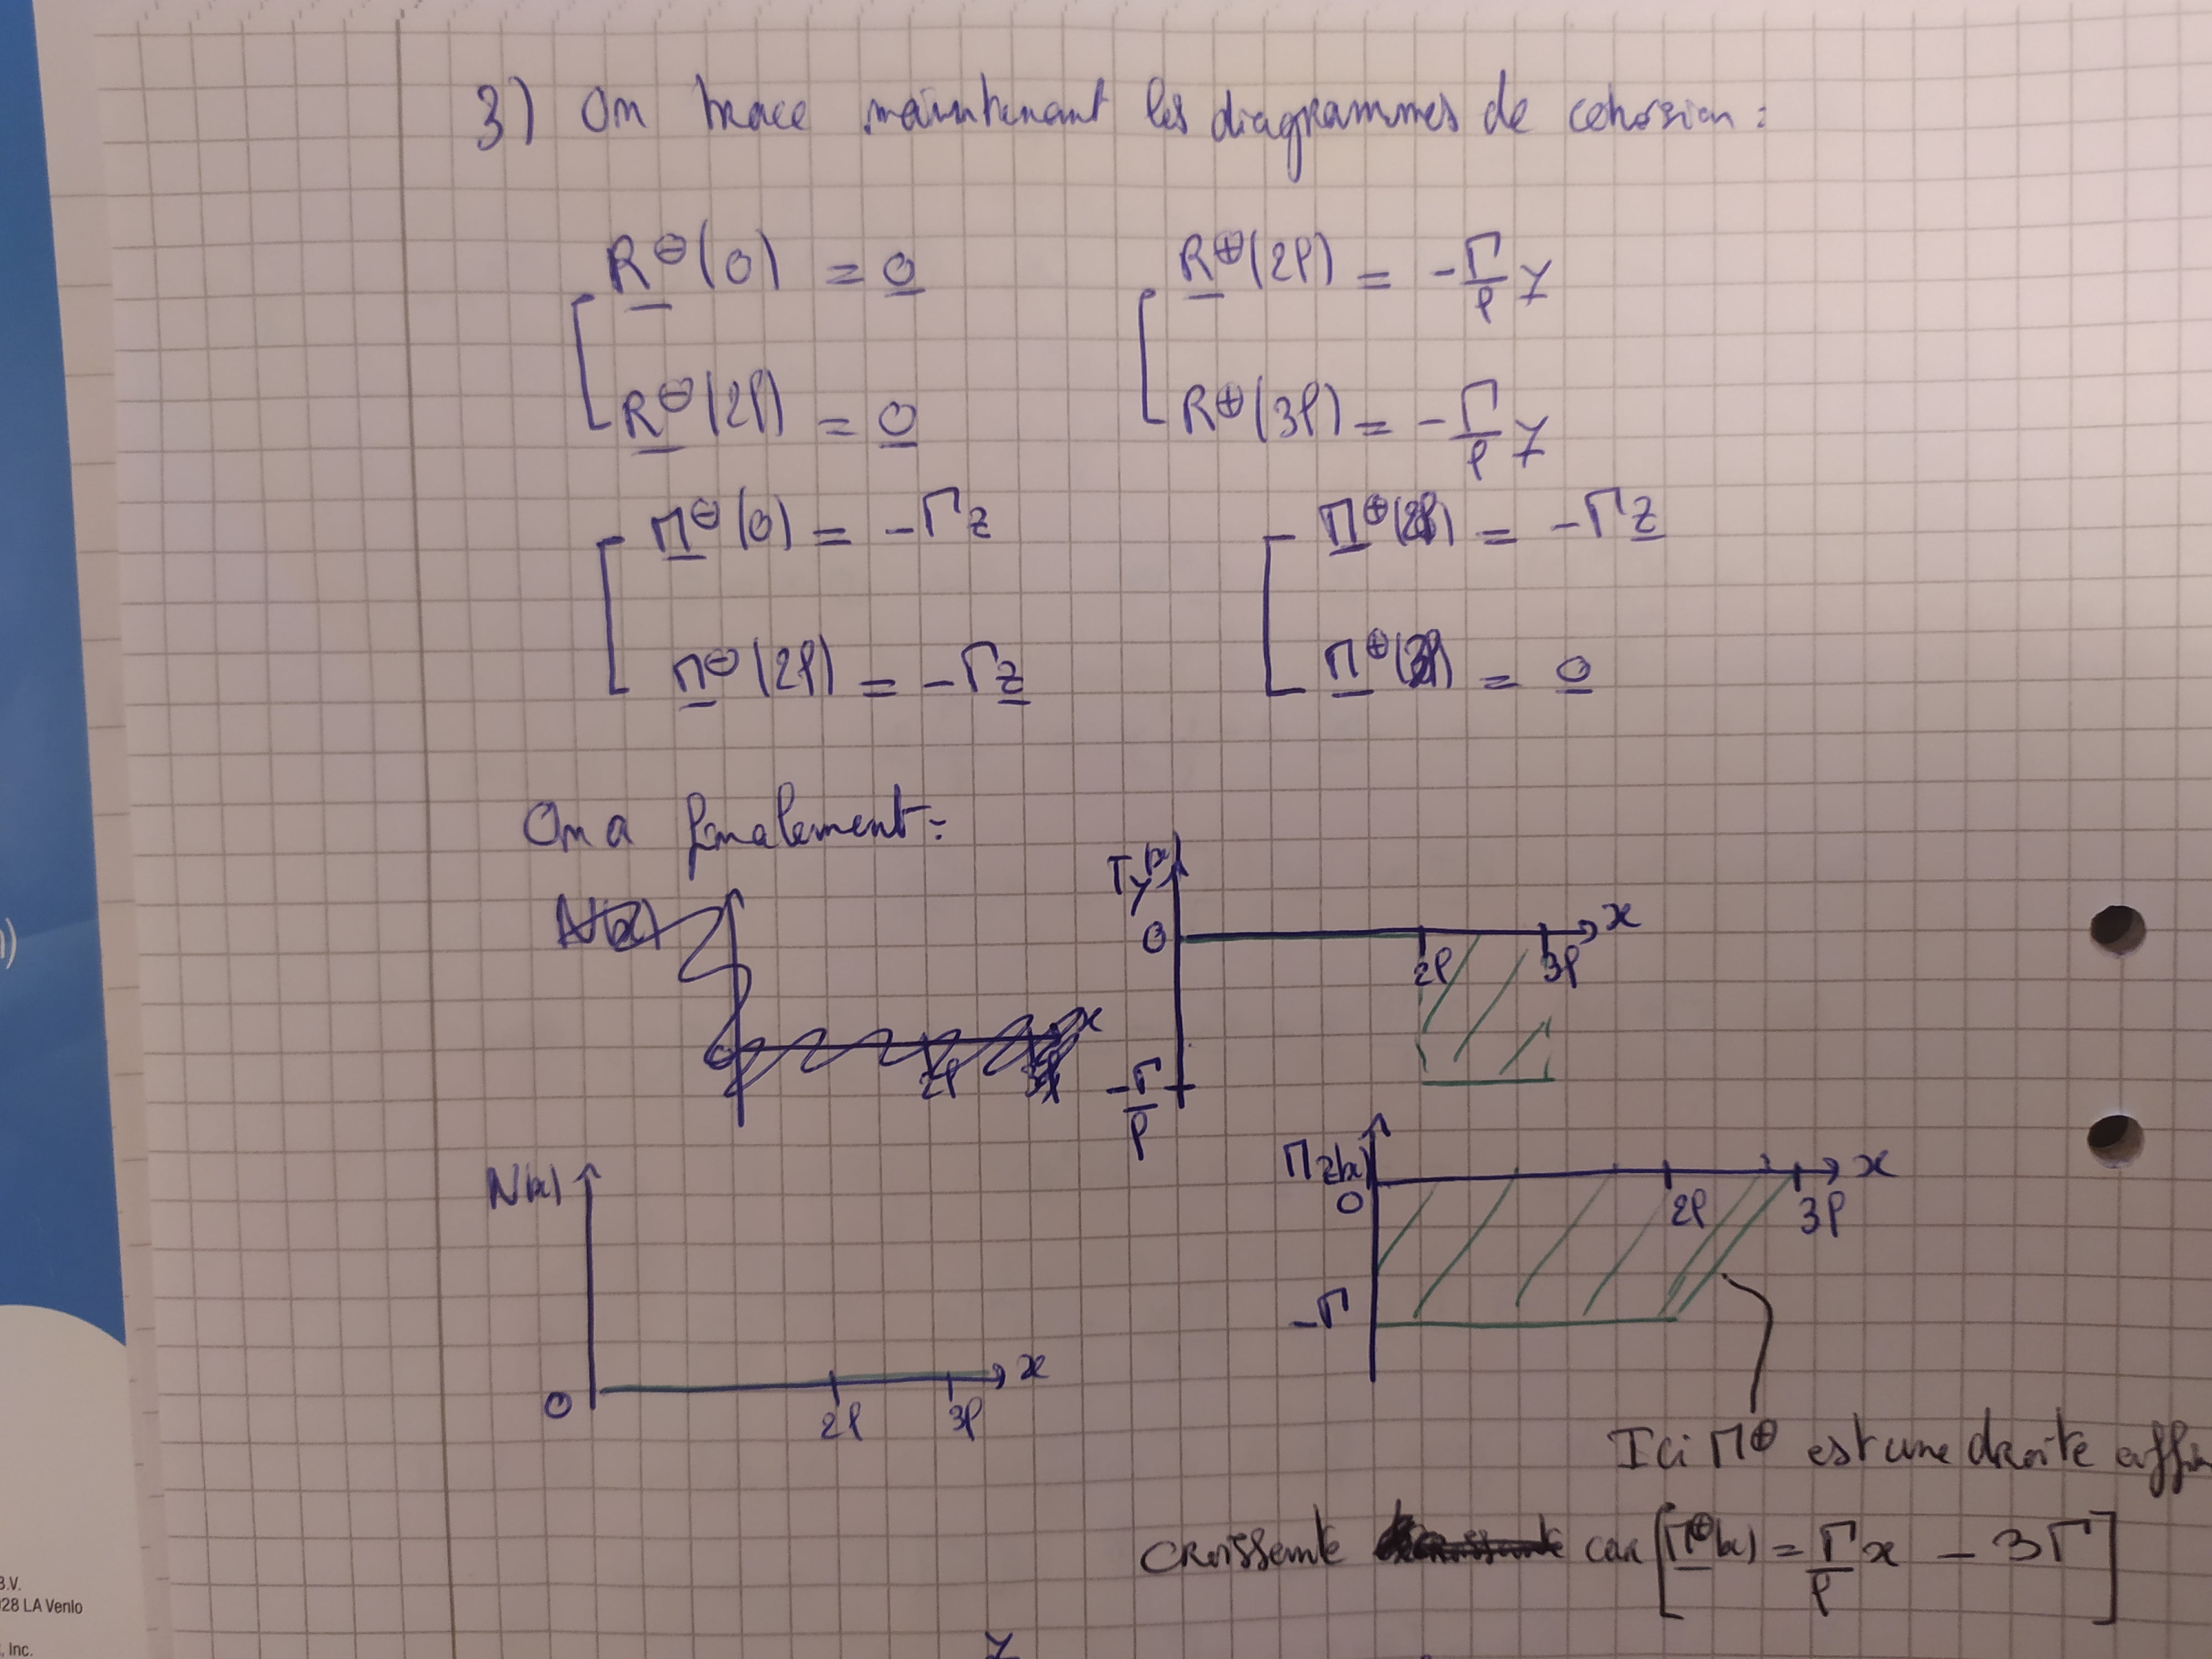 3) On trace maintenant les diagrammes de cohésion :
R⊖(0) = 0
R⊕(2ℓ) = -Γ/ℓ y
R⊖(2ℓ) = 0
R⊕(3ℓ) = -Γ/ℓ y
Π⊖(0) = -Γz
Π⊕(2ℓ) = -Γz
Π⊖(2ℓ) = -Γz
Π⊕(3ℓ) = 0
On a finalement :
Ty(x)
0
2ℓ
3ℓ
x
-Γ/ℓ
N(x)
0
2ℓ
3ℓ
x
Πz(x)
0
2ℓ
3ℓ
x
-Γ
Ici Π⊕ est une droite
croissante car [Π⊕(x) = Γ/ℓ x - 3Γ]
y
B.V.
928 LA Venlo
, Inc.